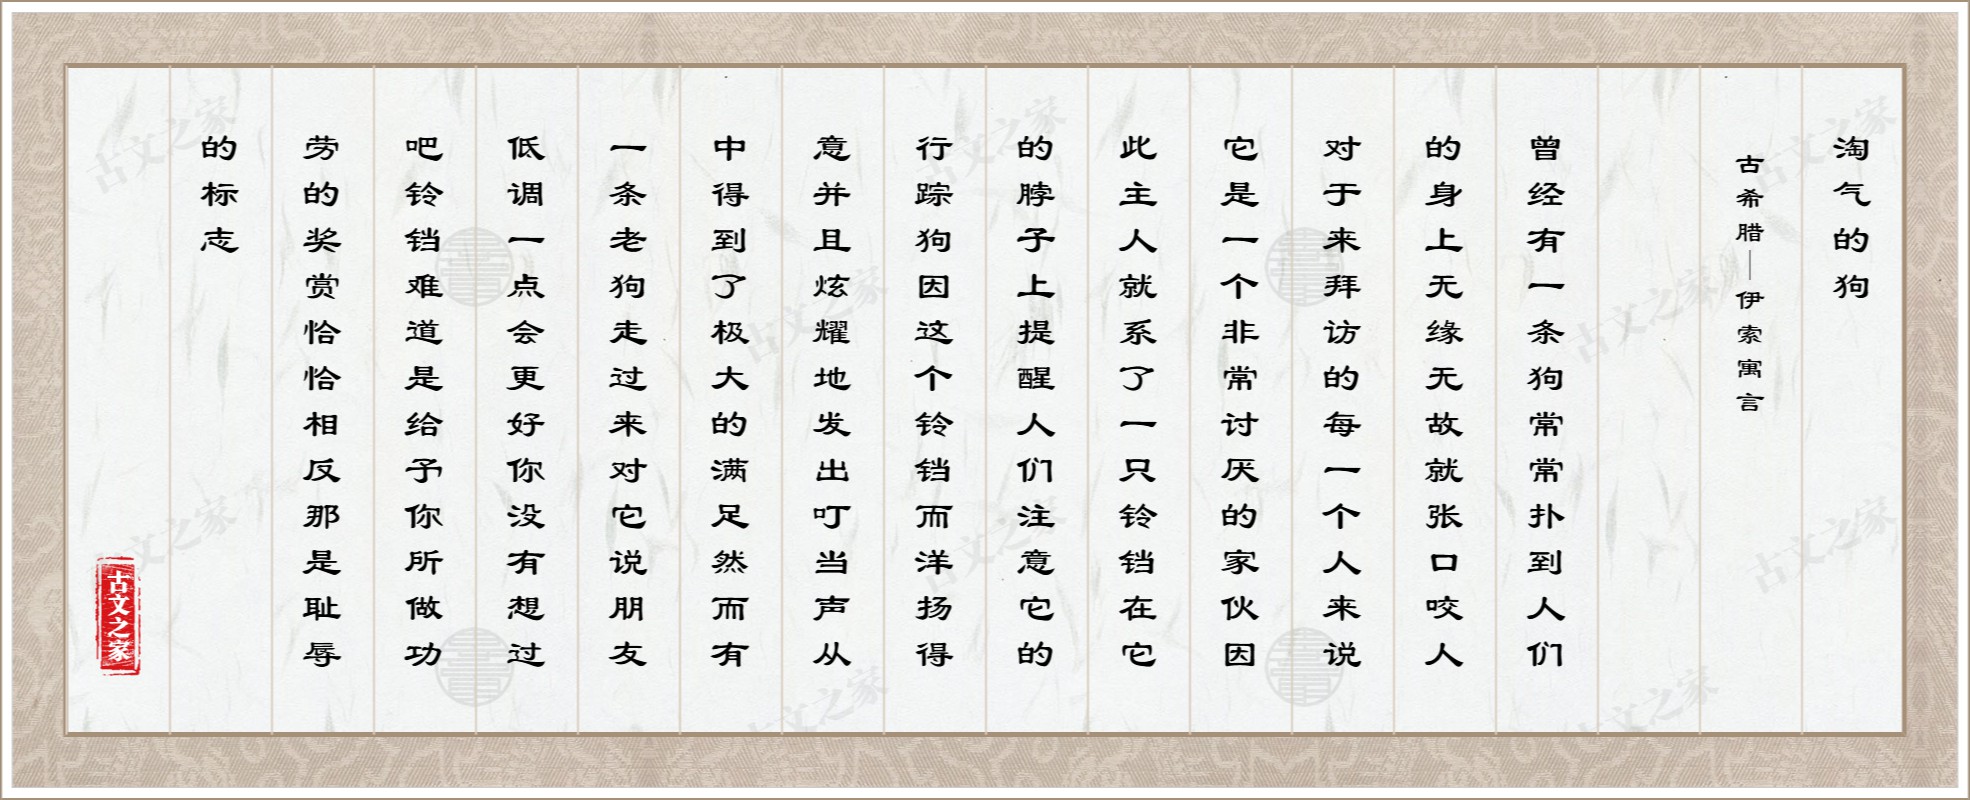 淘气的狗
古希腊—伊索寓言
曾经有一条狗常常扑到人们
的身上无缘无故就张口咬人
对于来拜访的每一个人来说
它是一个非常讨厌的家伙因
此主人就系了一只铃铛在它
的脖子上提醒人们注意它的
行踪狗因这个铃铛而洋扬得
意并且炫耀地发出叮当声从
中得到了极大的满足然而有
一条老狗走过来对它说朋友
低调一点会更好你没有想过
吧铃铛难道是给予你所做功
劳的奖赏恰恰相反那是耻辱
的标志
古文之家